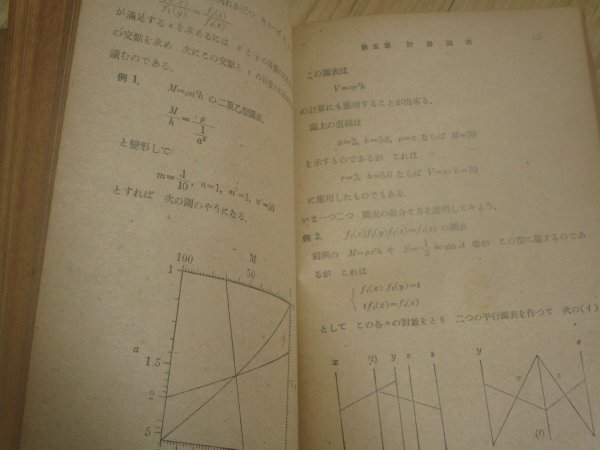 f₃(y) = f₄(s)
が滿足する s を求めるには
の交點を求め 次にこの交點と
讀むのである.
例 1. M=ρa²h の二重乙型圖表.
M/h = ρ/(1/a²)
と變形して
m=1/10, n=1, m'=1, n'=10
とすれば 次の圖のやうになる.
M
100
50
1
1.5
a
2
5
第五章 計算圖表
この圖表は
V=πr²h
の計算にも應用することが出來る.
圖上の直線は
a=2, h=5.6, ρ=π ならば M=70
を示すものであるが これは
r=2, h=5.6 ならば V=πr²h=70
に應用したものでもある.
いま一つ二つ 圖表の組合せ方を說明してみよう.
例 2. f₁(x)f₂(y)f₃(z)=f₄(s) の圖表
前例の M=ρa²h や S=1/2 bc sin A 等が この型に屬するのであ
るが これは
{ f₁(x) f₂(y)=t
tf₃(z)=f₄(s)
として この各々の對數をとり 二つの平行圖表を作つて 次の(イ)
x (t) y s z
y z s
x
(t)